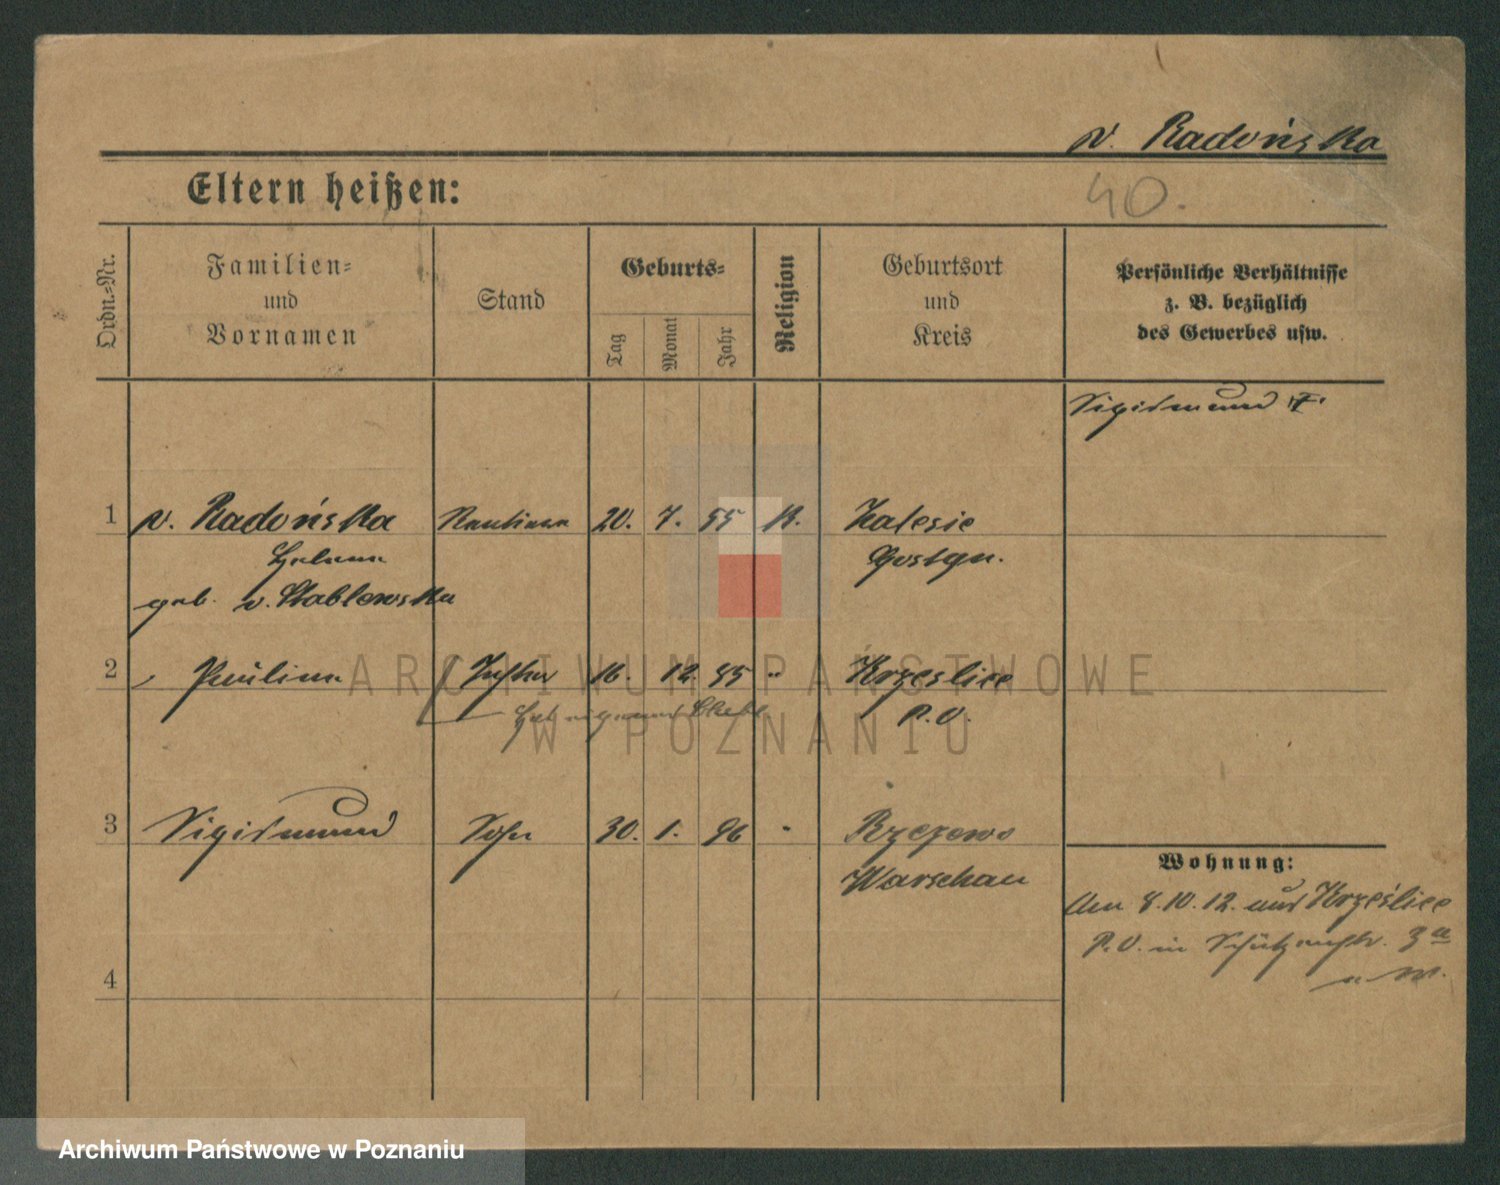 v. Radońska
Eltern heißen:
40.
Ordn.-Nr.
Familien-
und
Vornamen
Stand
Geburts-
Tag
Monat
Jahr
Religion
Geburtsort
und
Kreis
Persönliche Verhältnisse
z. B. bezüglich
des Gewerbes usw.
Sigismund
1 v. Radońska 20. 7. 55 K. Zalesie
Helene Gostyn.
geb. v. Stablewska
2 Pauline Tochter 16. 12. 85 " Krzeslice
P.O.
3 Sigismund Sohn 30. 1. 96 "
Warschau
Wohnung:
Am 8.10.12. aus Krześlice
P.O. in Schützenstr. 3a
4
ARCHIWUM PAŃSTWOWE
W POZNANIU
Archiwum Państwowe w Poznaniu